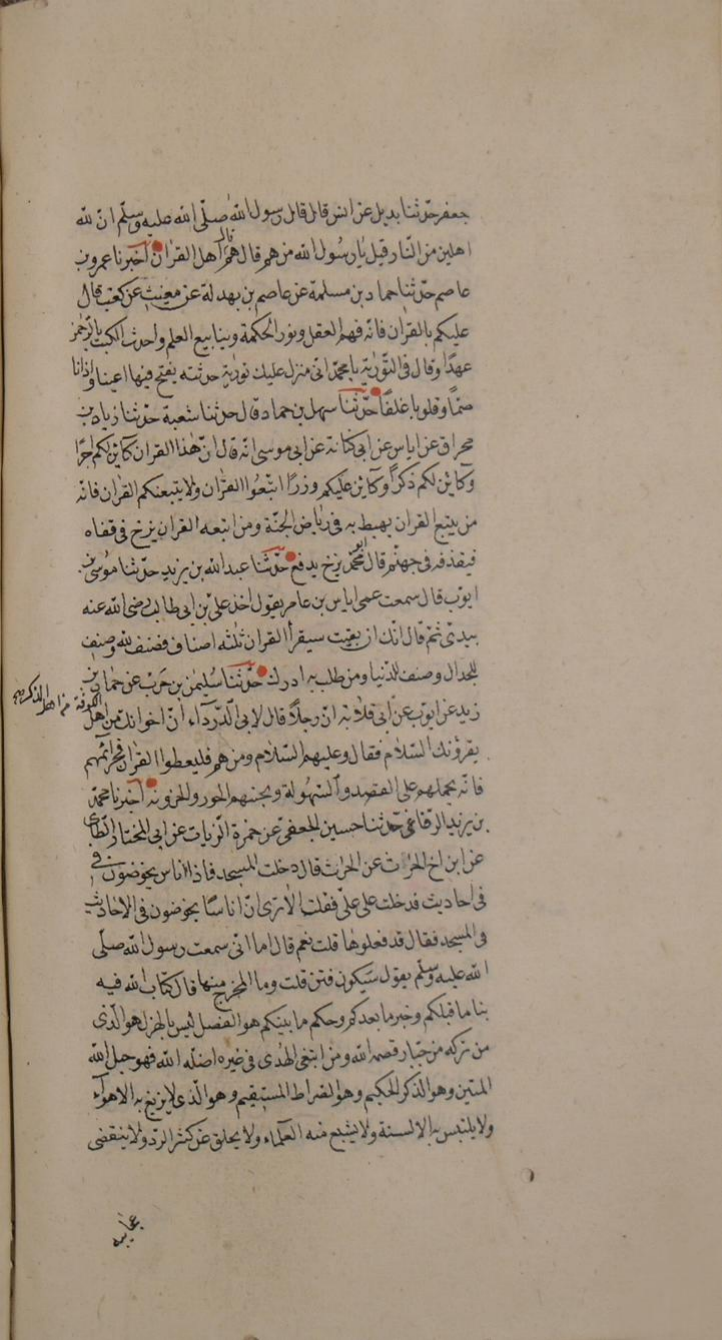 جعفر حدّثنا بديل عن انس قال قال رسول الله صلّى الله عليه وسلّم انّ لله
اهلين من النّار قيل يا رسُول الله من هم قال هم قال اهل القرٰان اخبرنا عمرو بن
عاصم حدّثنا حماد بن مسلمة عن عاصم بن بهدلة عن مغيث عن كعب قال
عليكم بالقرٰان فانّه فهم العقل ونور الحكمة وينابيع العلم واحدث الكتب بالرّحمٰن
عهدًا وقال فى التّورٰية يا محمّد انّى منزل عليك تورٰية حدثته يفتح فيها اعينا واذانا
صمّاً وقلوبا غلفًا حدّثنا سهل بن حماد قال حدثنا شعبة حدّثنا زياد بن
مخراق عن اياس عن ابى كنانة عن ابى موسى انّه قال انّ هٰذا القران كآئن لكم اجرًا
وكآئن لكم ذكرًا وكآئن عليكم وزرًا اتبّعوا القرٰان ولا يتبعنكم القرٰان فانّه
من يتبع القران يهبط به فى رياض الجنّة ومن اتبعه القران يزخ فى قفاه
فيقذفه فى جهنّم قال ابو محمّد يزخ يدفع حدّثنا عبد الله بن يزيد حدّثنا مُوسٰى بن
ايوب قال سمعت عمى اياس بن عامر يقول اخذ علىّ بن ابى طالب رضى الله عنه
بيدى ثمّ قال انّك ان بقيت سيقرأ القران ثلٰثه اصناف فصنف لله وصنف
للجدال وصنف للدّنيا ومن طلب به ادرك حدّثنا سُليمٰن بن حَرب عن حماد بن
زيد عن ايوب عن ابى قلابة انّ رجلًا قال لابى الدّردآء انّ اخوانك من اهل
الكوفة من اهل الذكر
يقرؤنك السّلام فقال وعليهم السّلام ومن هم فليعطوا القرٰان بخزائمهم
فانّه يحملهم على القصد والسّهولة ويجنبهم الجور والحزونة اخبرنا محمّد
بن يزيد الرّفاعى حدّثنا حسين الجعفى عن حمزة الزّيات عن ابى المختار الطّاى
عن ابن اخ الحٰرث عن الحٰرث قال دخلت المسجد فاذا اناس يخوضون فى
فى احاديث فدخلت على علىّ فقلت الا ترى انّ اناسًا يخوضون فى الاحاديث
فى المسجد فقال قد فعلوها قلت نعم قال اما انّى سمعت رسول الله صلّى
الله عليه وسلّم يقول ستكون فتن قلت وما المخرج منها قال كتاب الله فيه
بنا ما قبلكم وخبر ما بعدكم وحكم ما بينكم هو الفصل ليس بالهزل هو الّذى
من تركه من جبّار قصمه الله ومن ابتغى الهدى فى غيره اضلّه الله فهو حبل الله
المتين وهو الذكر الحكيم وهو الصّراط المستقيم وهو الّذى لا يزيغ به الاهوآء
ولا يلتبس به الالسنة ولا يشبع منه العلمآء ولا يخلق عن كثرة الردّ ولا ينقضى
عجايبه